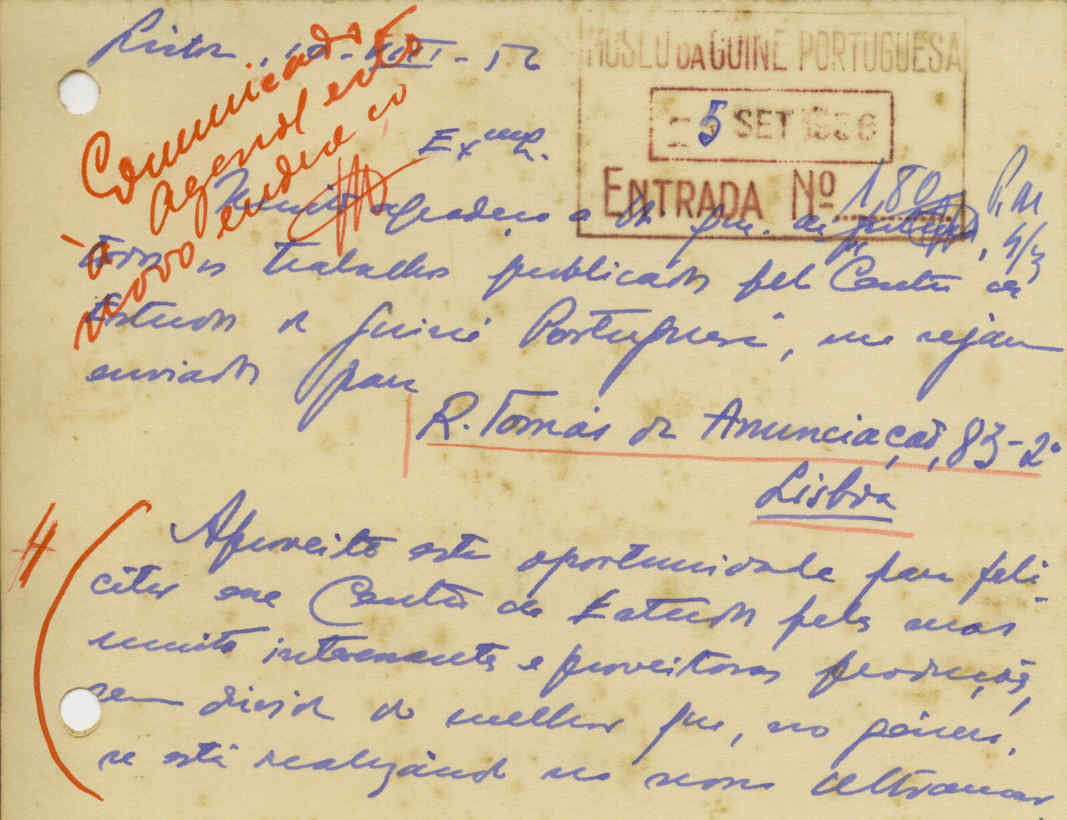 Lisboa, - VIII - 56
MUSEU DA GUINÉ PORTUGUESA
5 SET 1956
ENTRADA Nº 180
Comunicado
à Agencia este
novo endereço
Exmº Sr.
Muito agradeço a V. que de futuro,
todos os trabalhos publicados pelo Centro de
Estudos da Guiné Portuguesa, me sejam
enviados para
R. Tomás da Anunciação, 83-2º
Lisboa
Aproveito esta oportunidade para feli-
citar esse Centro de Estudos pelas suas
muito interessantes e proveitosas produções,
sem dúvida do melhor que, no género,
se está realizando no nosso Ultramar